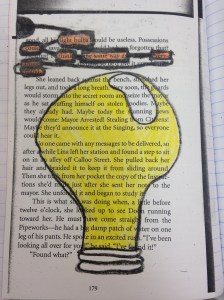 good, all light bulbs would be useless. Possessions
She leaned back against the bench, stretched her
legs out, and took a long breath. Very soon, the guards
would storm the secret room and seize the
as he sat stuffing himself on stolen goodies. Maybe
they already had. Maybe today the stunning news
would come: Mayor Arrested! Stealing from Citizens!
Maybe they'd announce it at the Singing, so everyone
could hear it.
No one came with any messages to be delivered, so
after awhile Lina left her station and found a step to sit
on in a dry of Calloo Street. She pulled back her
hair and braided it to keep it from sliding around.
Then she took from her pocket the copy of the Instruc-
tions she'd made just after she sent her note to the
mayor. She unfolded it and began to study it.
This is what she was doing when, a little before
twelve o'clock, she looked up to see Doon running
toward her. He must have come straight from the
Pipeworks—he had a big damp patch of water on one
leg of his pants. He spoke in an excited rush. "I've been
looking all over for you!" he said. "I've found it!"
"Found what?"
179